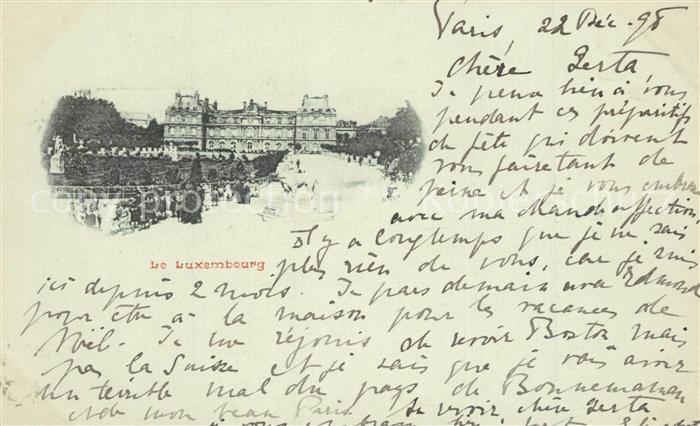 Paris, 22 Déc. 98
Chère Gerta
Je pense bien à vous
pendant ces préparatifs
de fête qui doivent
vous faire tant de
peine et je vous embrasse
avec ma chaude affection,
Il y a longtemps que je ne sais
plus rien de vous, car je suis
ici depuis 2 mois. Je pars demain avec Edmond
pour être à la maison pour les vacances de
Noël. Je me réjouis de revoir Boston mais
pas la Suisse et je sais que je vais avoir
un terrible mal du pays de Bonnemaman
et de mon beau Paris. Au revoir, chère Gerta
je vous embrasse
Le Luxembourg